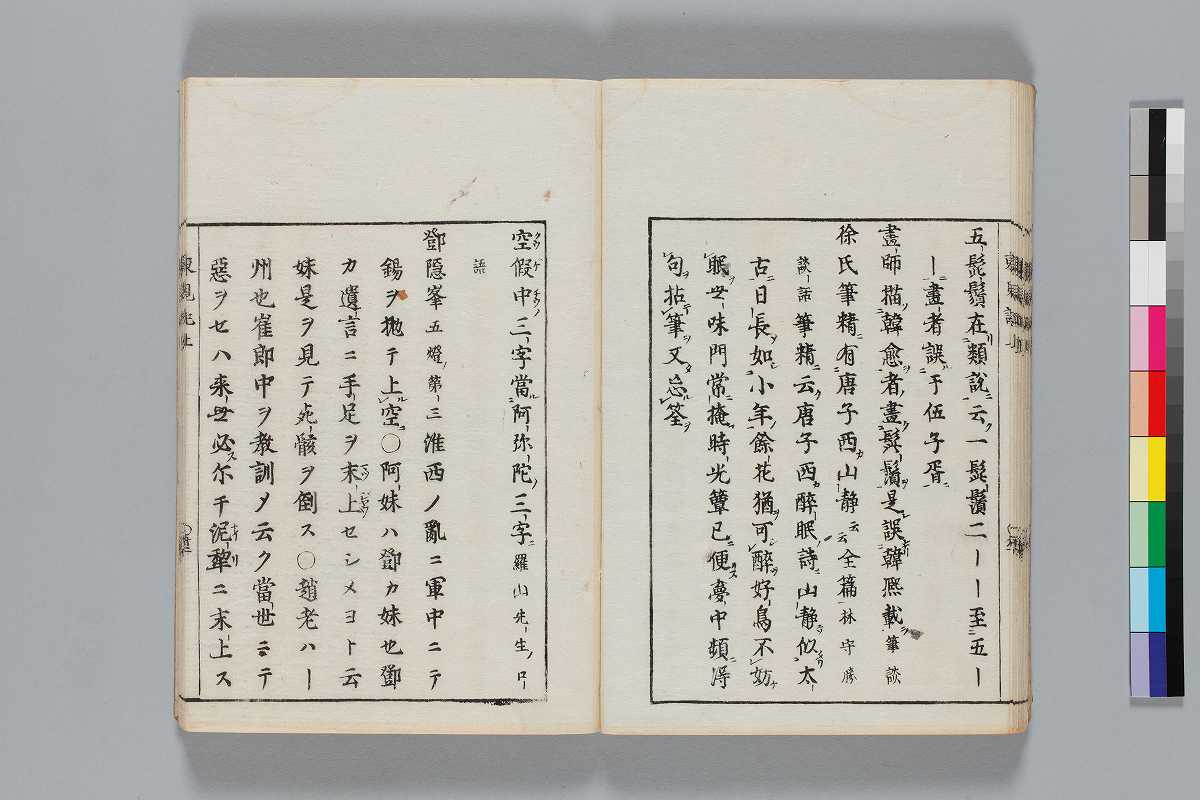 五髭鬚在類説云一髭鬚二ーー至五ー
ー畫者誤于伍子胥
畫師描韓愈者畫髭鬚是誤韓熈載筆談
徐氏筆精有唐子西山静云云全篇林守勝
談話筆精云唐子西醉眠詩山静似太
古日長如小年餘花猶可醉好鳥不妨
眠世味門常掩時光簟已便夢中頻得
句拈筆又忘筌
空假中三字當阿弥陀三字羅山先生口
語
鄧隠峯五燈第三淮西ノ亂ニ軍中ニテ
錫ヲ抛テ上空〇阿妹ハ鄧カ妹也鄧
カ遺言ニ手足ヲ末上セシメヨト云
妹是ヲ見テ死骸ヲ倒ス〇趙老ハー
州也崔郎中ヲ教訓メ云ク當世ニテ
惡ヲセハ来世必尓チ泥犂ニ末上ス